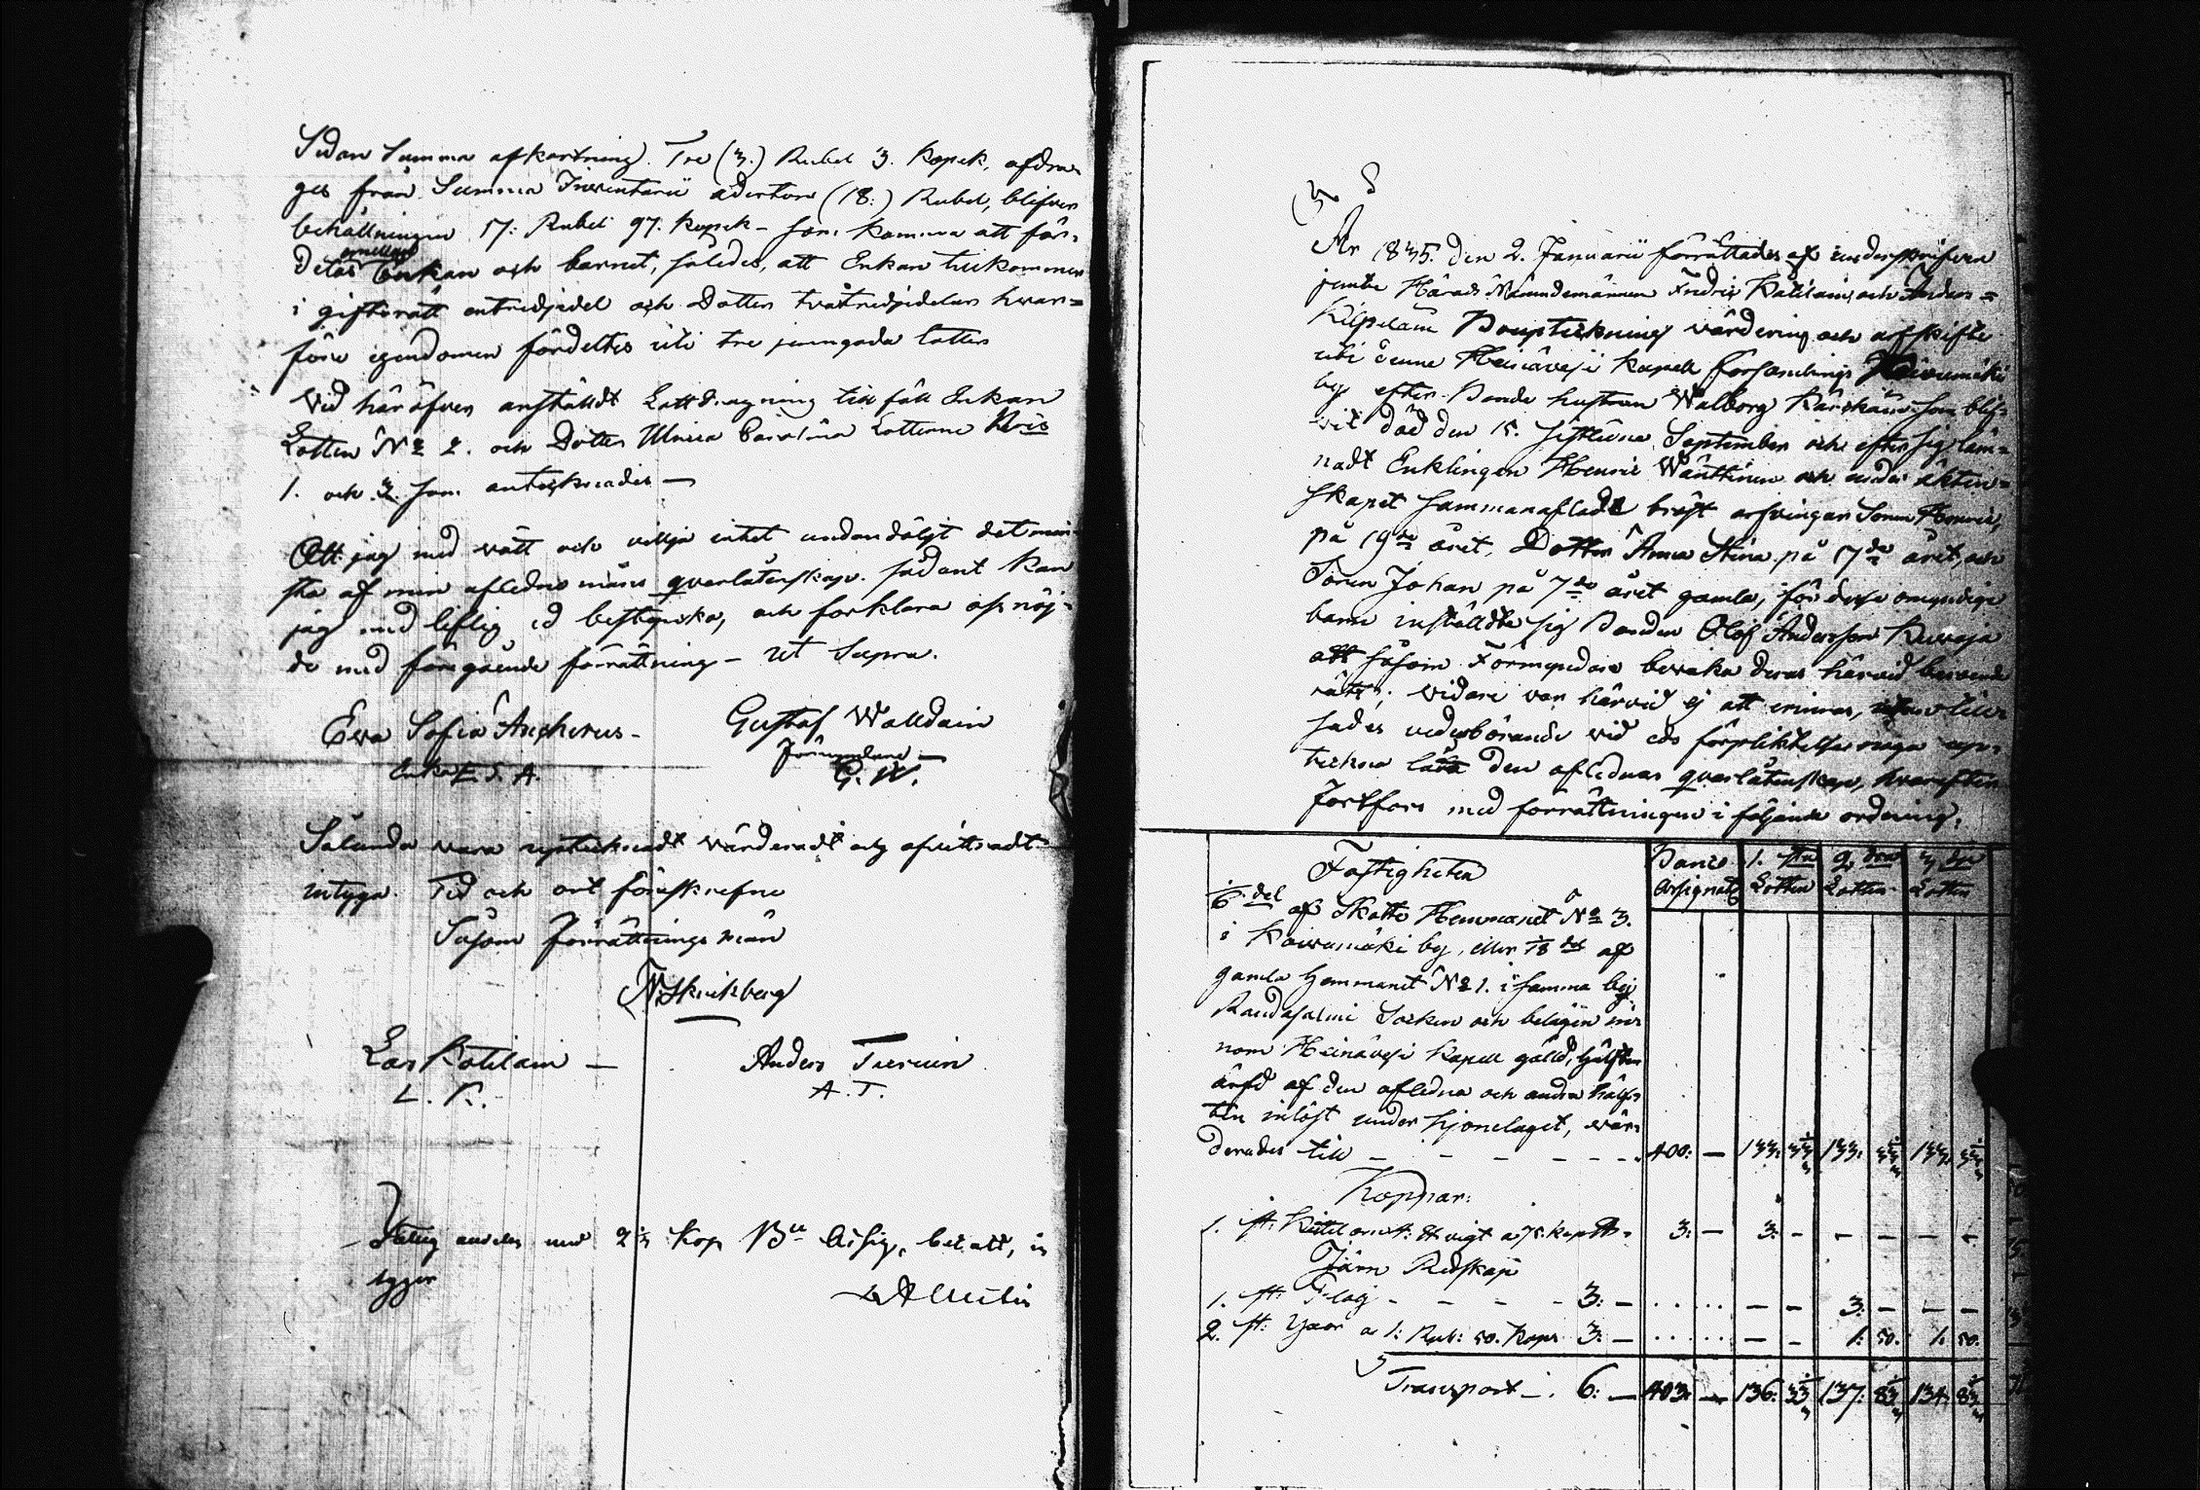 Sedan Summa afkortning. Tre (3.) Rubel 3. Kopek, afdra-
ges från Summa Inventarii aderton (18:) Rubel, blifver
behållningen 17: Rubel 97. Kopek – som komma att för-
delas emellan Enkan och barnet, således, att Enkan tillkommer
i giftorätt entredjedel och Dotter tvåtredjedelar hvar=
före egendomen fördeltes uti tre jemngoda lotter
Vid häröfver anställdt Lottdragning tillföll Enkan
Lotten N:o 2. och Dotter Maria Carolina Lotterne N:ris
1. och 3. som antecknades —
Att jag med vett och vilja intet undandöljt det min-
sta af min afledne mans qvarlåtenskap. sådant kan
jag med liflig ed bestyrka, och förklara oss nöj-
de med föregående förrättning – Ut Supra.
Ewa Sofia Ascherus –
Enka E. S. A.
Gustaf Walldain
Förmyndare —
G. W.
Sålunda vara upteknadt värderadt och afvittradt
intyga. Tid och ort förrskrefne
Såsom Förrättnings män
N. Skrikberg
Lars Kotilain —
L. K.
Anders Turuin
A. T.
andelen med Kop B:co Assig. betalt, in
tygar
År 1835. den 2. Januarii förrättades af underskrifven
jemte Härads Nämndemännen Fredric Kotilain, och Anders =
Kilpeläin Boupteckning värdering och arfskifte
uti denne Heinävesi Kapell församlings Koivumäki
by efter Bonde hustrun Walborg Kärhkäin som blif-
vit död den 15. sistledne September och efter sig läm-
nadt Enklingen Henric Wänttinen och under äkten-
skapet sammanaflade bröst arfvingar Sonen Henric,
på 19:de året, Dotter Anna Stina på 17:de året, och
Sonen Johan på 7:de året gamla, för desse omyndige
barn inställdte sig Bonden Olof Andersson
att såsom Förmyndare bevaka deras härvid beroende
rätt; vidare var härvid ej att erinras, utan tillsa-
des vederbörande vid eds förpliktelse noga upp-
tekna låta den aflednas qvarlåtenskap, hvarefter
fortfors med förrättningen i följande ordning;
Fastigheten
Banco Assignat:
1. sta Lotten
2. dra Lotten
3. dje Lotten
1/6 del af Skatte Hemmanet N:o 3.
i Koivumäki by, eller 1/18 del af
gamla Hemmanet N:o 1. i samma by
Randasalmi Socken och belägen in-
nom Heinävesi Kapell gäld, hälften
ärfd af den afledna och andra hälf-
ten inlöst under hjonelaget, vär-
derades till – – – – – – 400: — 133: 33 1/3 133: 33 1/3 133: 33 1/3
Koppar:
1. st: Kittel om 4: ℔ vigt a 75. kop ℔ – 3: – 3: – – – – –
Jern Redskap
1. st: Plog – – – – 3: – – – 3: – – –
2. st: Yxor a 1: Rub: 50. Kops 3: – – – 1: 50. 1. 50.
Transport –. 6: — 403: — 136: 33 1/3 137: 83 1/3 134: 83 1/3